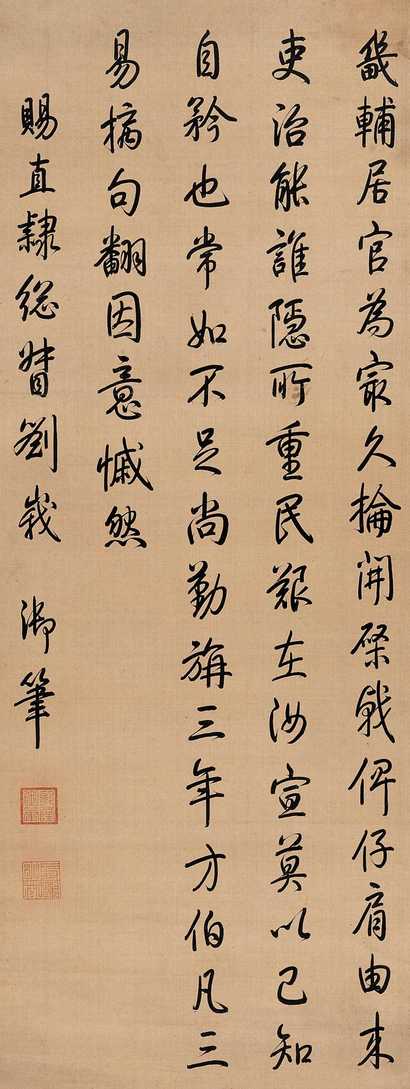 畿輔居官為最久掄開棨戟俾仔肩由来
吏治能誰隱所重民艱在汝宣莫以已知
自矜也常如不足尚勤旃三年方伯凡三
易摛句翻因意慽然
賜直隸總督劉峩 御筆